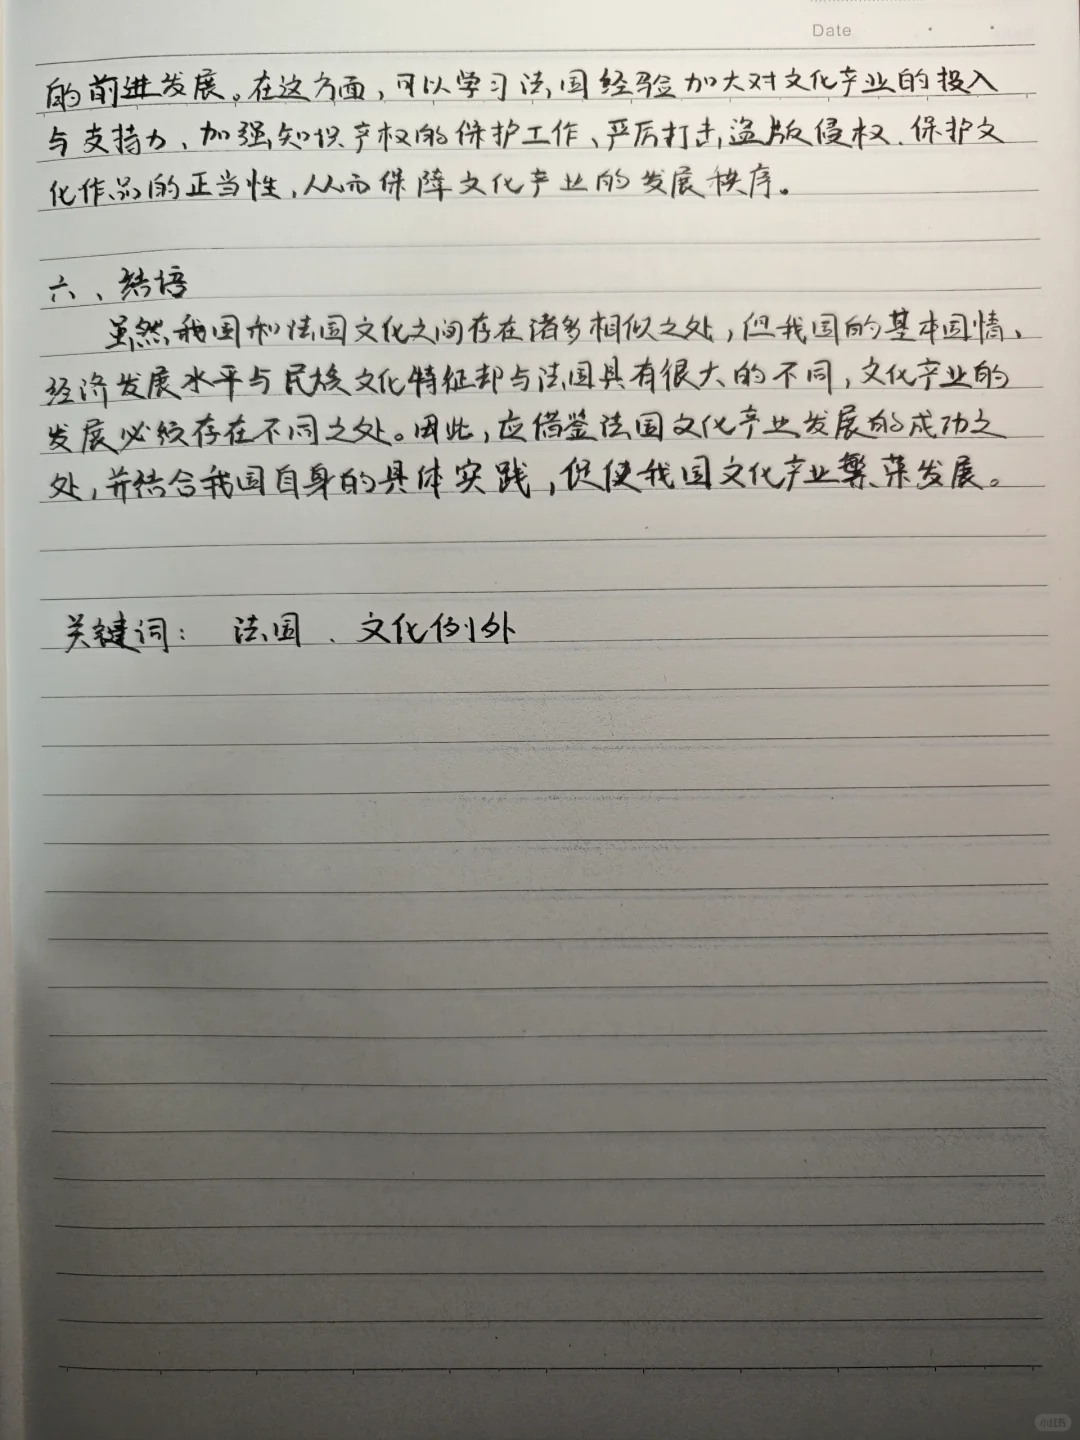 Date
的前进发展。在这方面，可以学习法国经验加大对文化产业的投入
与支持力、加强知识产权的保护工作、严厉打击盗版侵权、保护文
化作品的正当性，从而保障文化产业的发展秩序。
六、结语
虽然我国和法国文化之间存在诸多相似之处，但我国的基本国情、
经济发展水平与民族文化特征却与法国具有很大的不同，文化产业的
发展必须存在不同之处。因此，应借鉴法国文化产业发展的成功之
处，并结合我国自身的具体实践，促使我国文化产业繁荣发展。
关键词： 法国 、文化例外
小红书